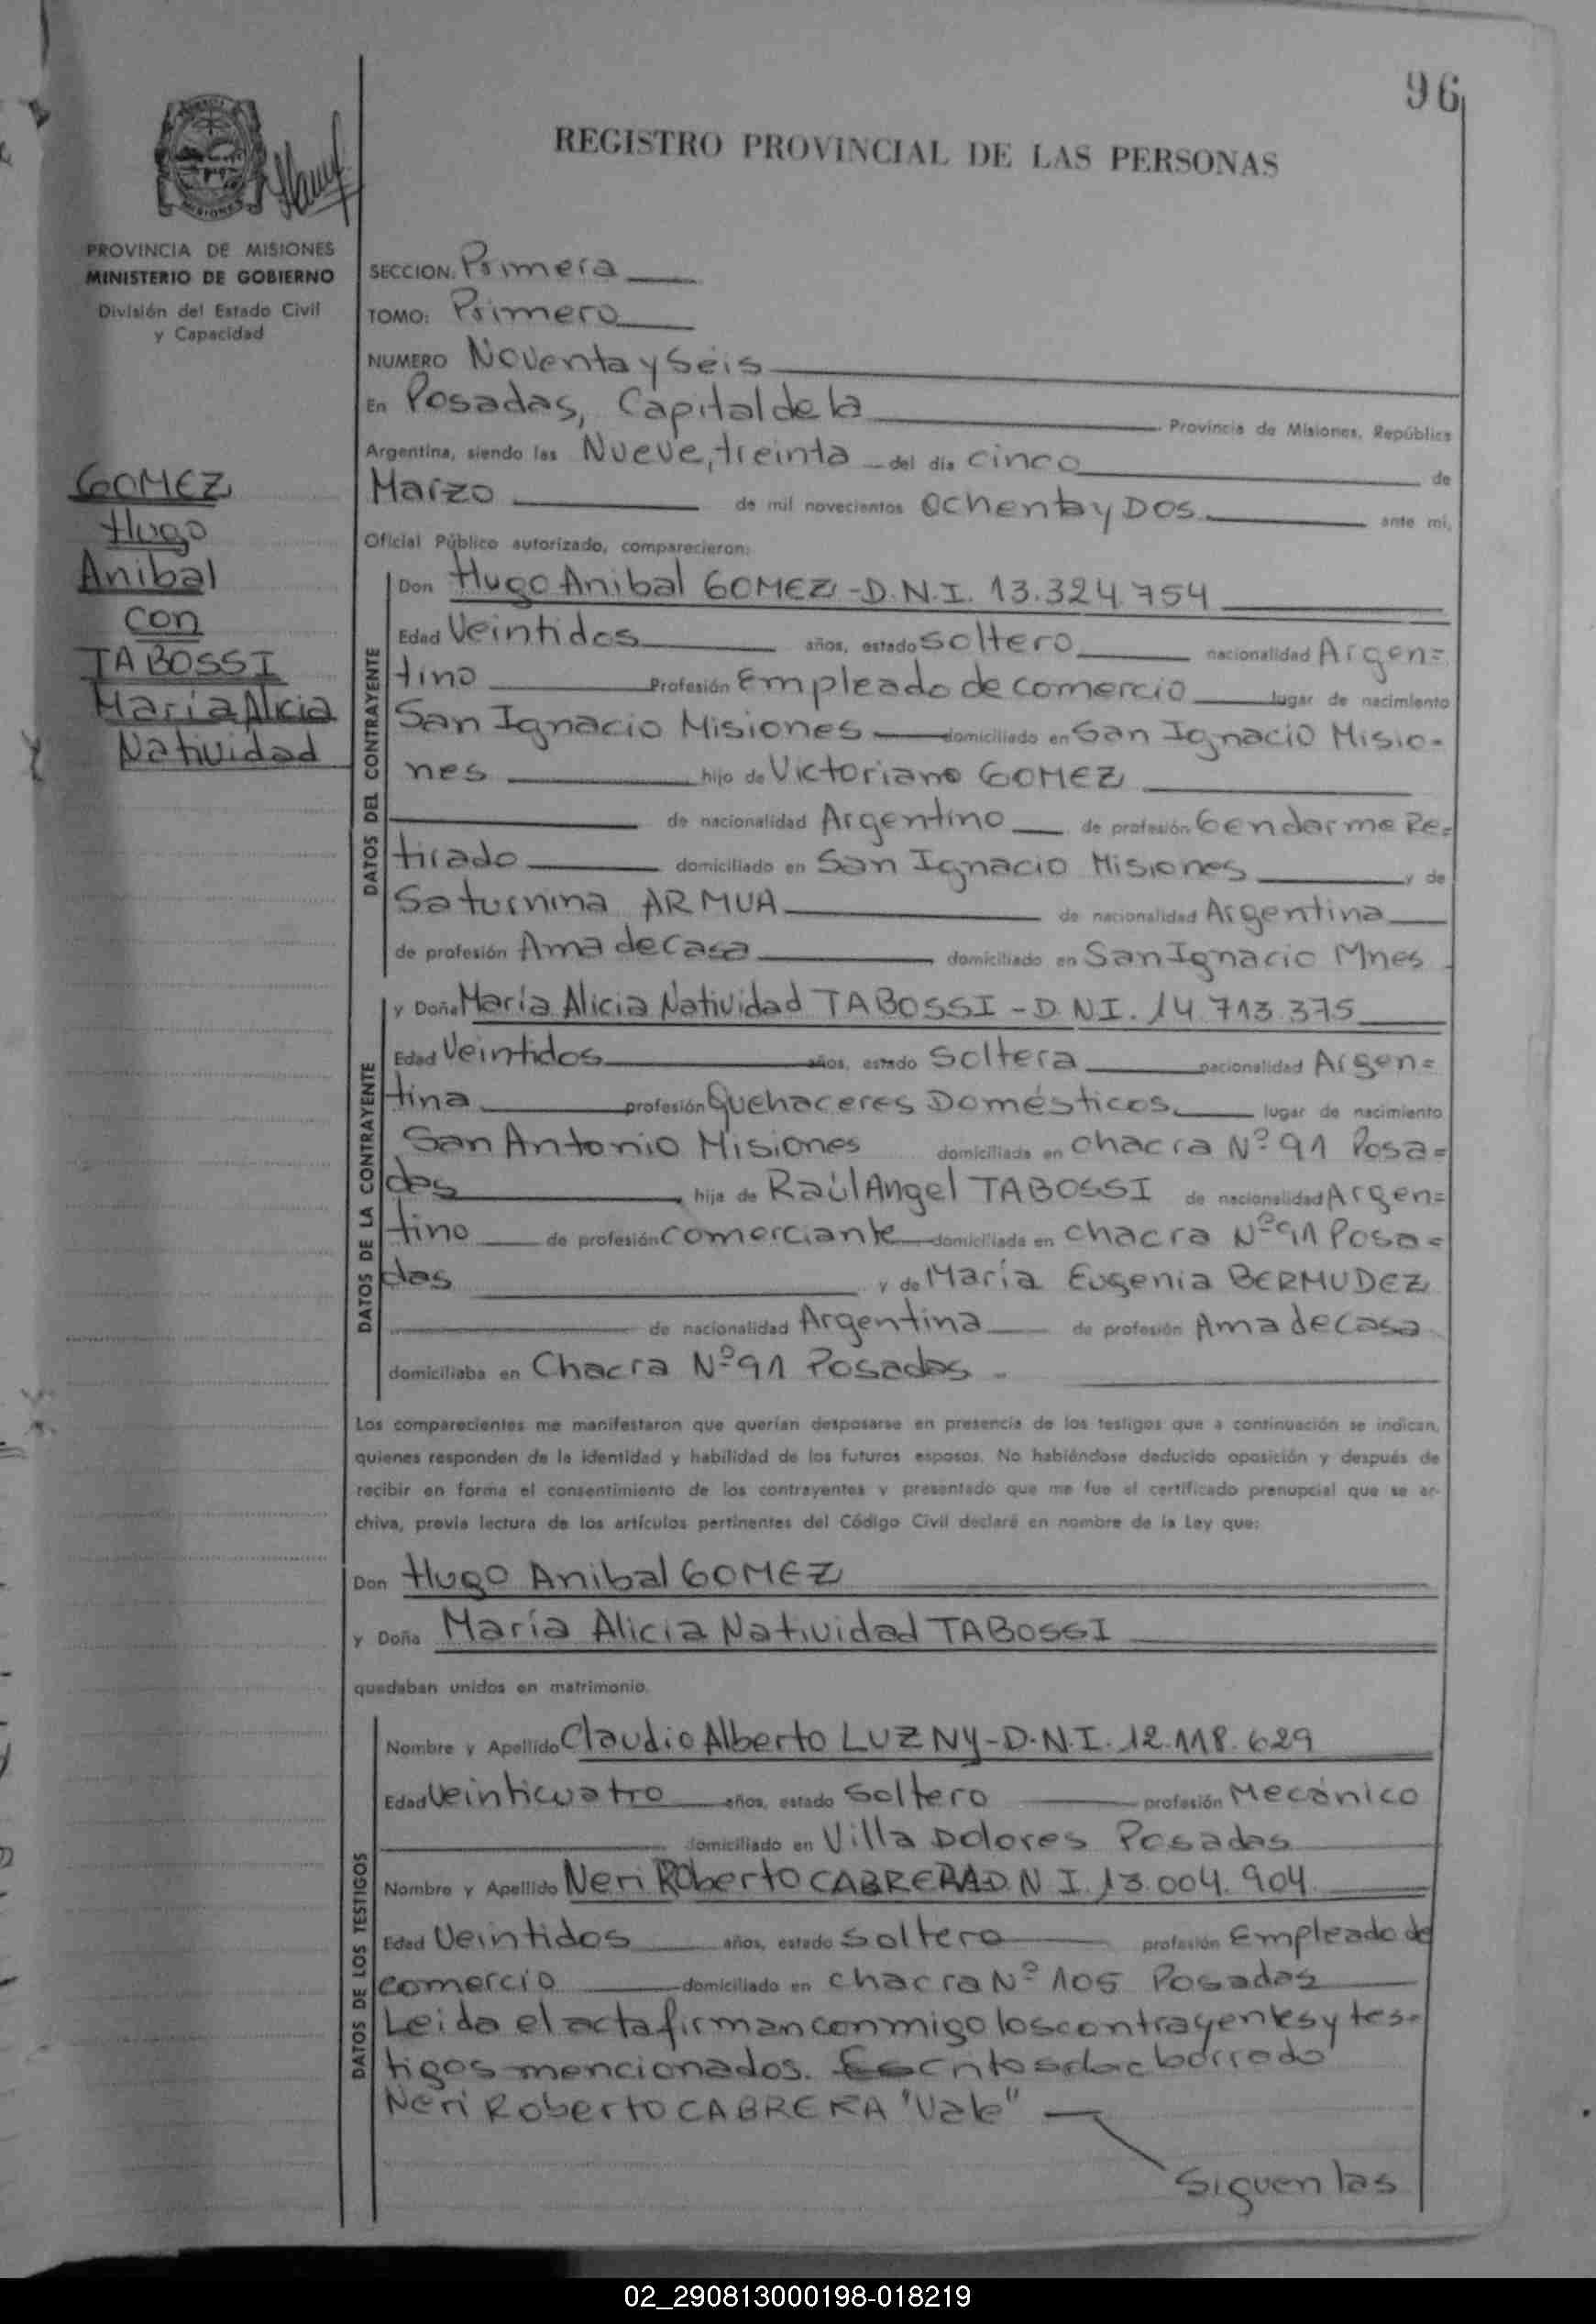 96
REGISTRO PROVINCIAL DE LAS PERSONAS
MISIONES
PROVINCIA DE MISIONES
MINISTERIO DE GOBIERNO
División del Estado Civil
y Capacidad
GOMEZ
Hugo
Anibal
con
TABOSSI
María Alicia
Natividad
SECCION: Primera
TOMO: Primero
NUMERO Noventa y Séis
En Posadas, Capital de la Provincia de Misiones, República
Argentina, siendo las Nueve, treinta del día cinco de
Marzo de mil novecientos Ochenta y Dos ante mí,
Oficial Público autorizado, comparecieron:
DATOS DEL CONTRAYENTE
Don Hugo Anibal GOMEZ - D.N.I. 13.324.754
Edad Veintidos años, estado Soltero nacionalidad Argen=
tino Profesión Empleado de comercio lugar de nacimiento
San Ignacio Misiones domiciliado en San Ignacio Misio-
nes hijo de Victoriano GOMEZ
de nacionalidad Argentino de profesión Gendarme Re=
tirado domiciliado en San Ignacio Misiones y de
Saturnina ARMUA de nacionalidad Argentina
de profesión Ama de Casa domiciliado en San Ignacio Mnes
DATOS DE LA CONTRAYENTE
y Doña María Alicia Natividad TABOSSI - D.N.I. 14.713.375
Edad Veintidos años, estado Soltera nacionalidad Argen=
tina profesión Quehaceres Domésticos lugar de nacimiento
San Antonio Misiones domiciliada en Chacra Nº 91 Posa=
das hija de Raúl Angel TABOSSI de nacionalidad Argen=
tino de profesión Comerciante domiciliada en Chacra Nº 91 Posa=
das y de María Eugenia BERMUDEZ
de nacionalidad Argentina de profesión Ama de Casa
domiciliaba en Chacra Nº 91 Posadas -
Los comparecientes me manifestaron que querían desposarse en presencia de los testigos que a continuación se indican,
quienes responden de la identidad y habilidad de los futuros esposos. No habiéndose deducido oposición y después de
recibir en forma el consentimiento de los contrayentes y presentado que me fue el certificado prenupcial que se ar-
chiva, previa lectura de los artículos pertinentes del Código Civil declaré en nombre de la Ley que:
Don Hugo Anibal GOMEZ
y Doña María Alicia Natividad TABOSSI
quedaban unidos en matrimonio.
DATOS DE LOS TESTIGOS
Nombre y Apellido Claudio Alberto LUZNY - D.N.I. 12.118.629
Edad Veinticuatro años, estado Soltero profesión Mecánico
domiciliado en Villa Dolores Posadas
Nombre y Apellido Neri Roberto CABRERA D.N.I. 13.004.904
Edad Veintidos años, estado Soltero profesión Empleado de
comercio domiciliado en chacra Nº 105 Posadas
Leida el acta firman conmigo los contrayentes y tes-
tigos mencionados. Escrito sobre borrado
Neri Roberto CABRERA "Vale"
Siguen las
02_290813000198-018219